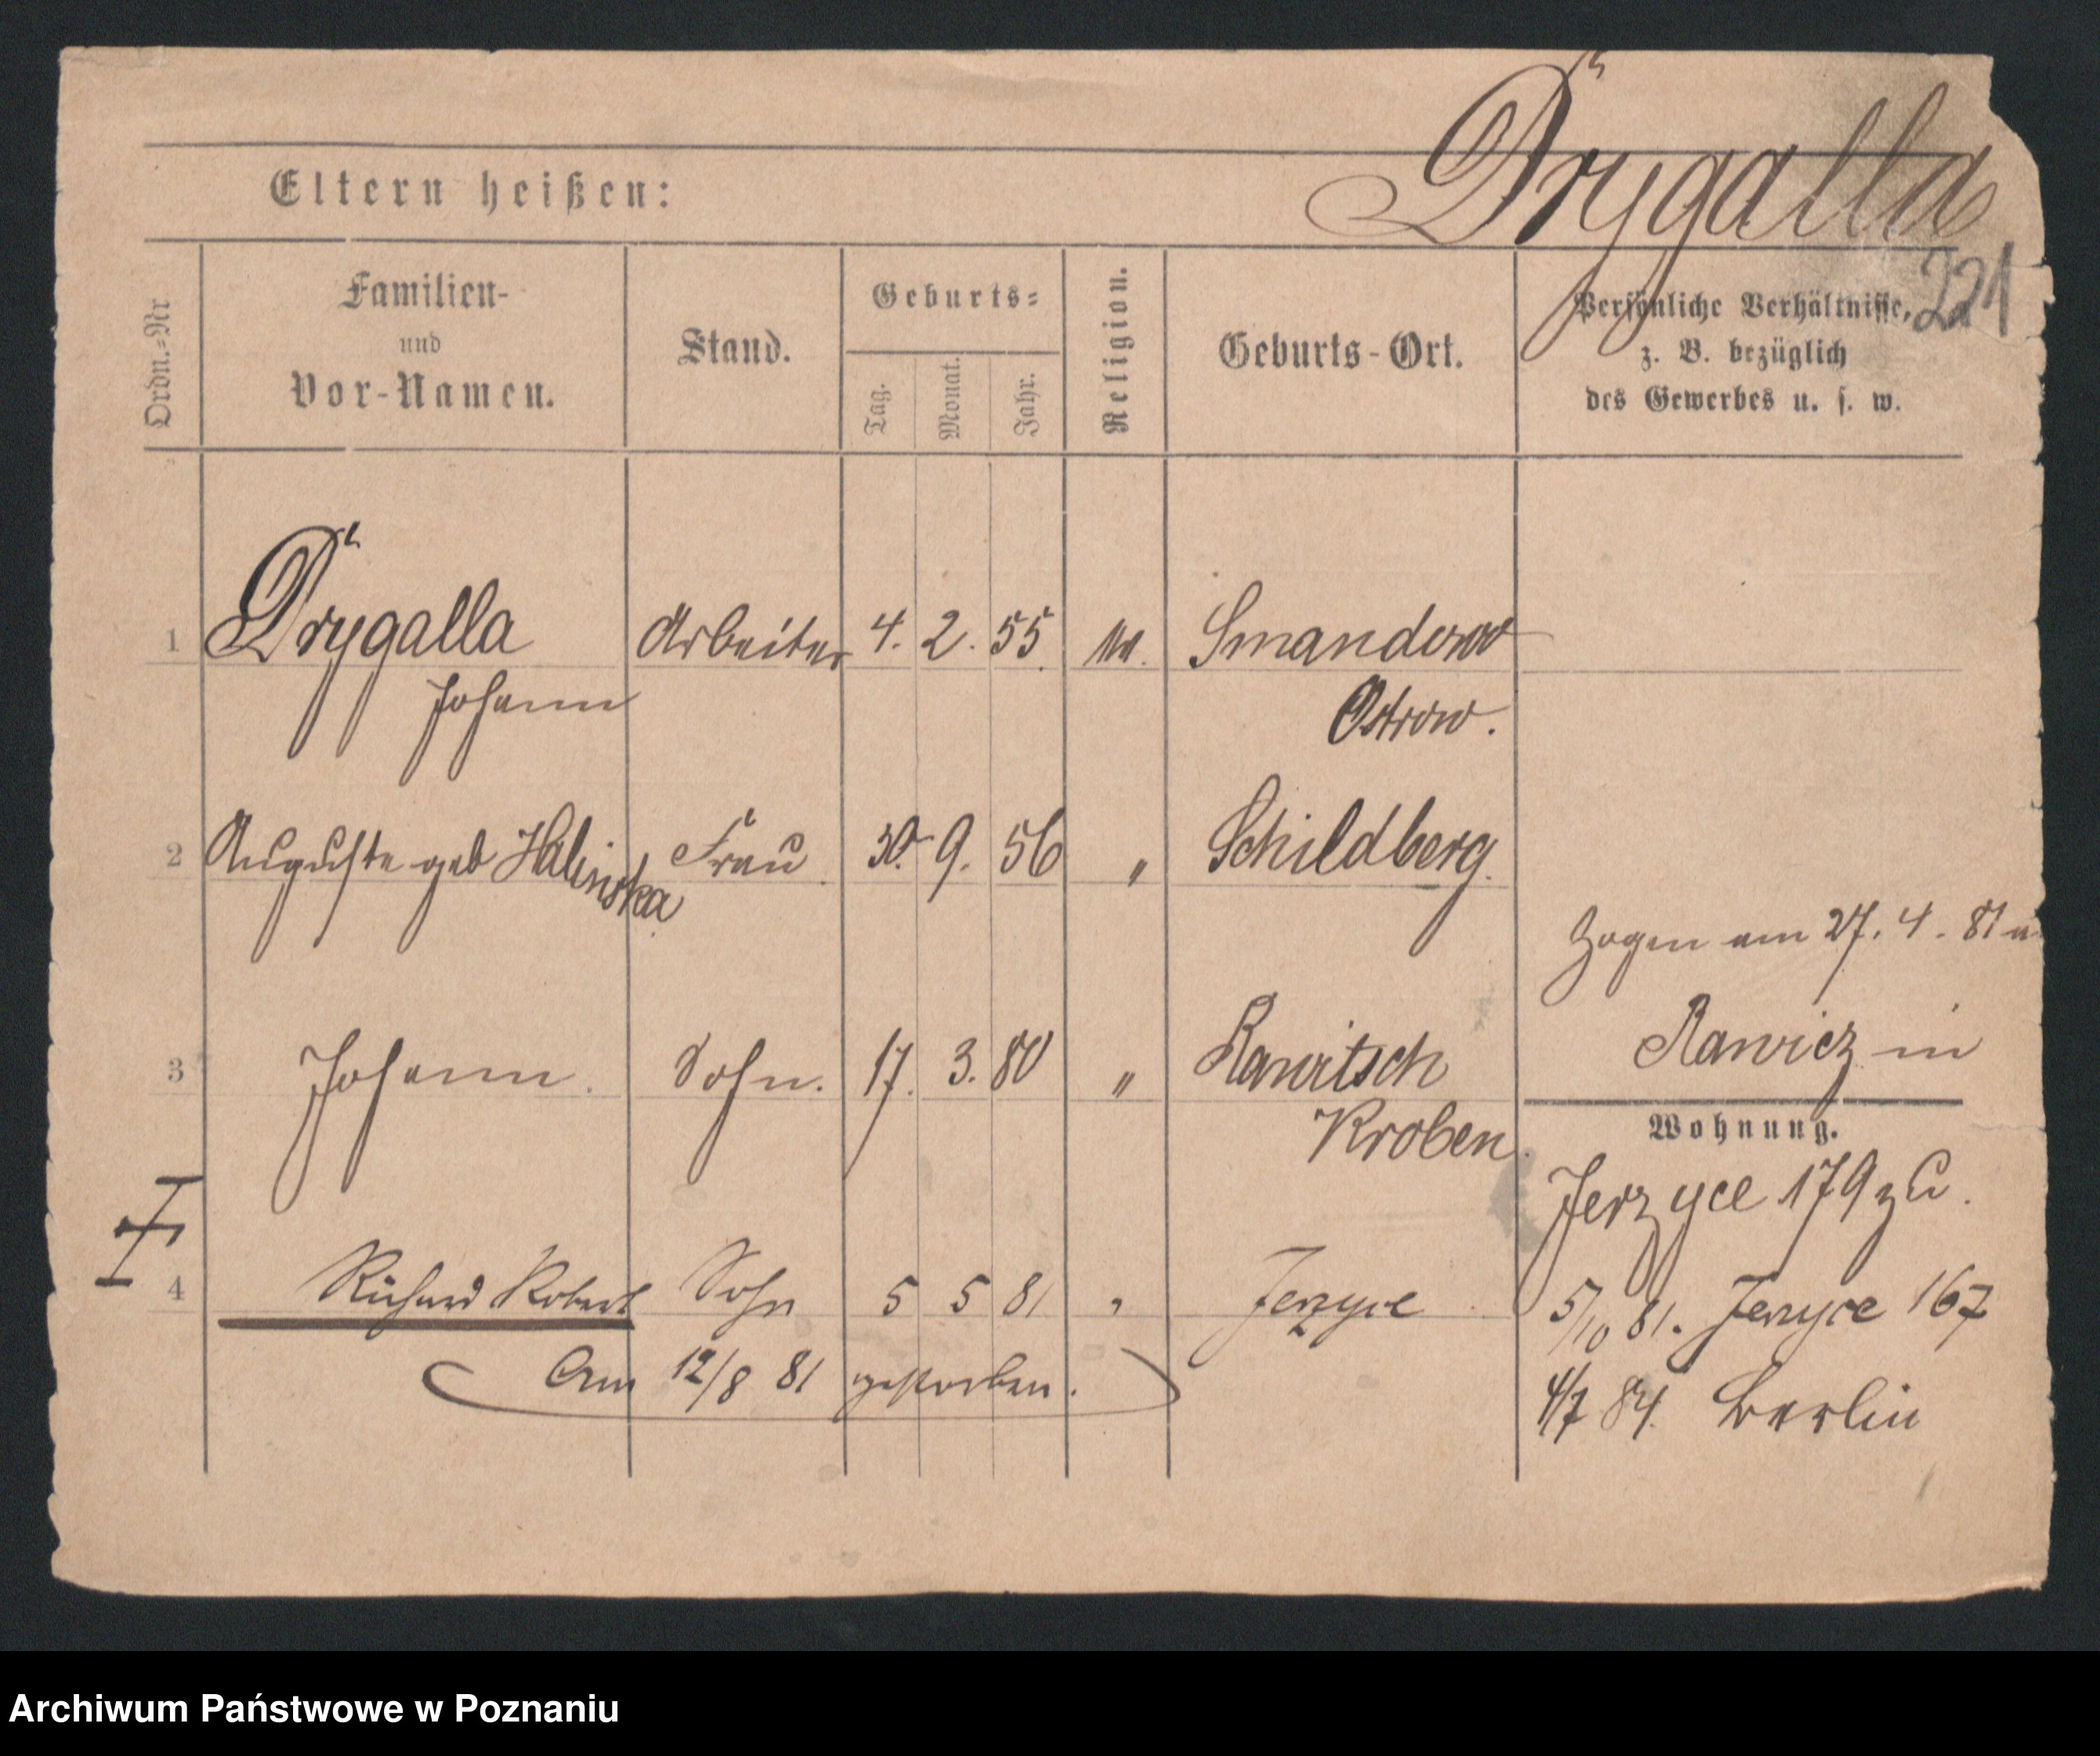 Drygalla
221
Eltern heißen:
Ordn.=Nr
Familien-
und
Vor-Namen.
Stand.
Geburts=
Tag.
Monat.
Jahr.
Religion.
Geburts-Ort.
Persönliche Verhältnisse,
z. B. bezüglich
des Gewerbes u. s. w.
1 Drygalla Arbeiter 4. 2. 55. Smanderow
Johann Ostrow.
2 Auguste geb Halinska Frau 30. 9. 56 " Schildberg.
Zogen am 27. 4. 81
3 Johann. Sohn. 17. 3. 80 " Rawitsch
Kroben.
Rawicz in
Wohnung.
Jerzyce 179
4 Richard Robert Sohn 5 5 81 " Jerzyce
5/10 81. Jerzyce 167
Am 12/8 81 gestorben.
4/7 84. Berlin
Archiwum Państwowe w Poznaniu